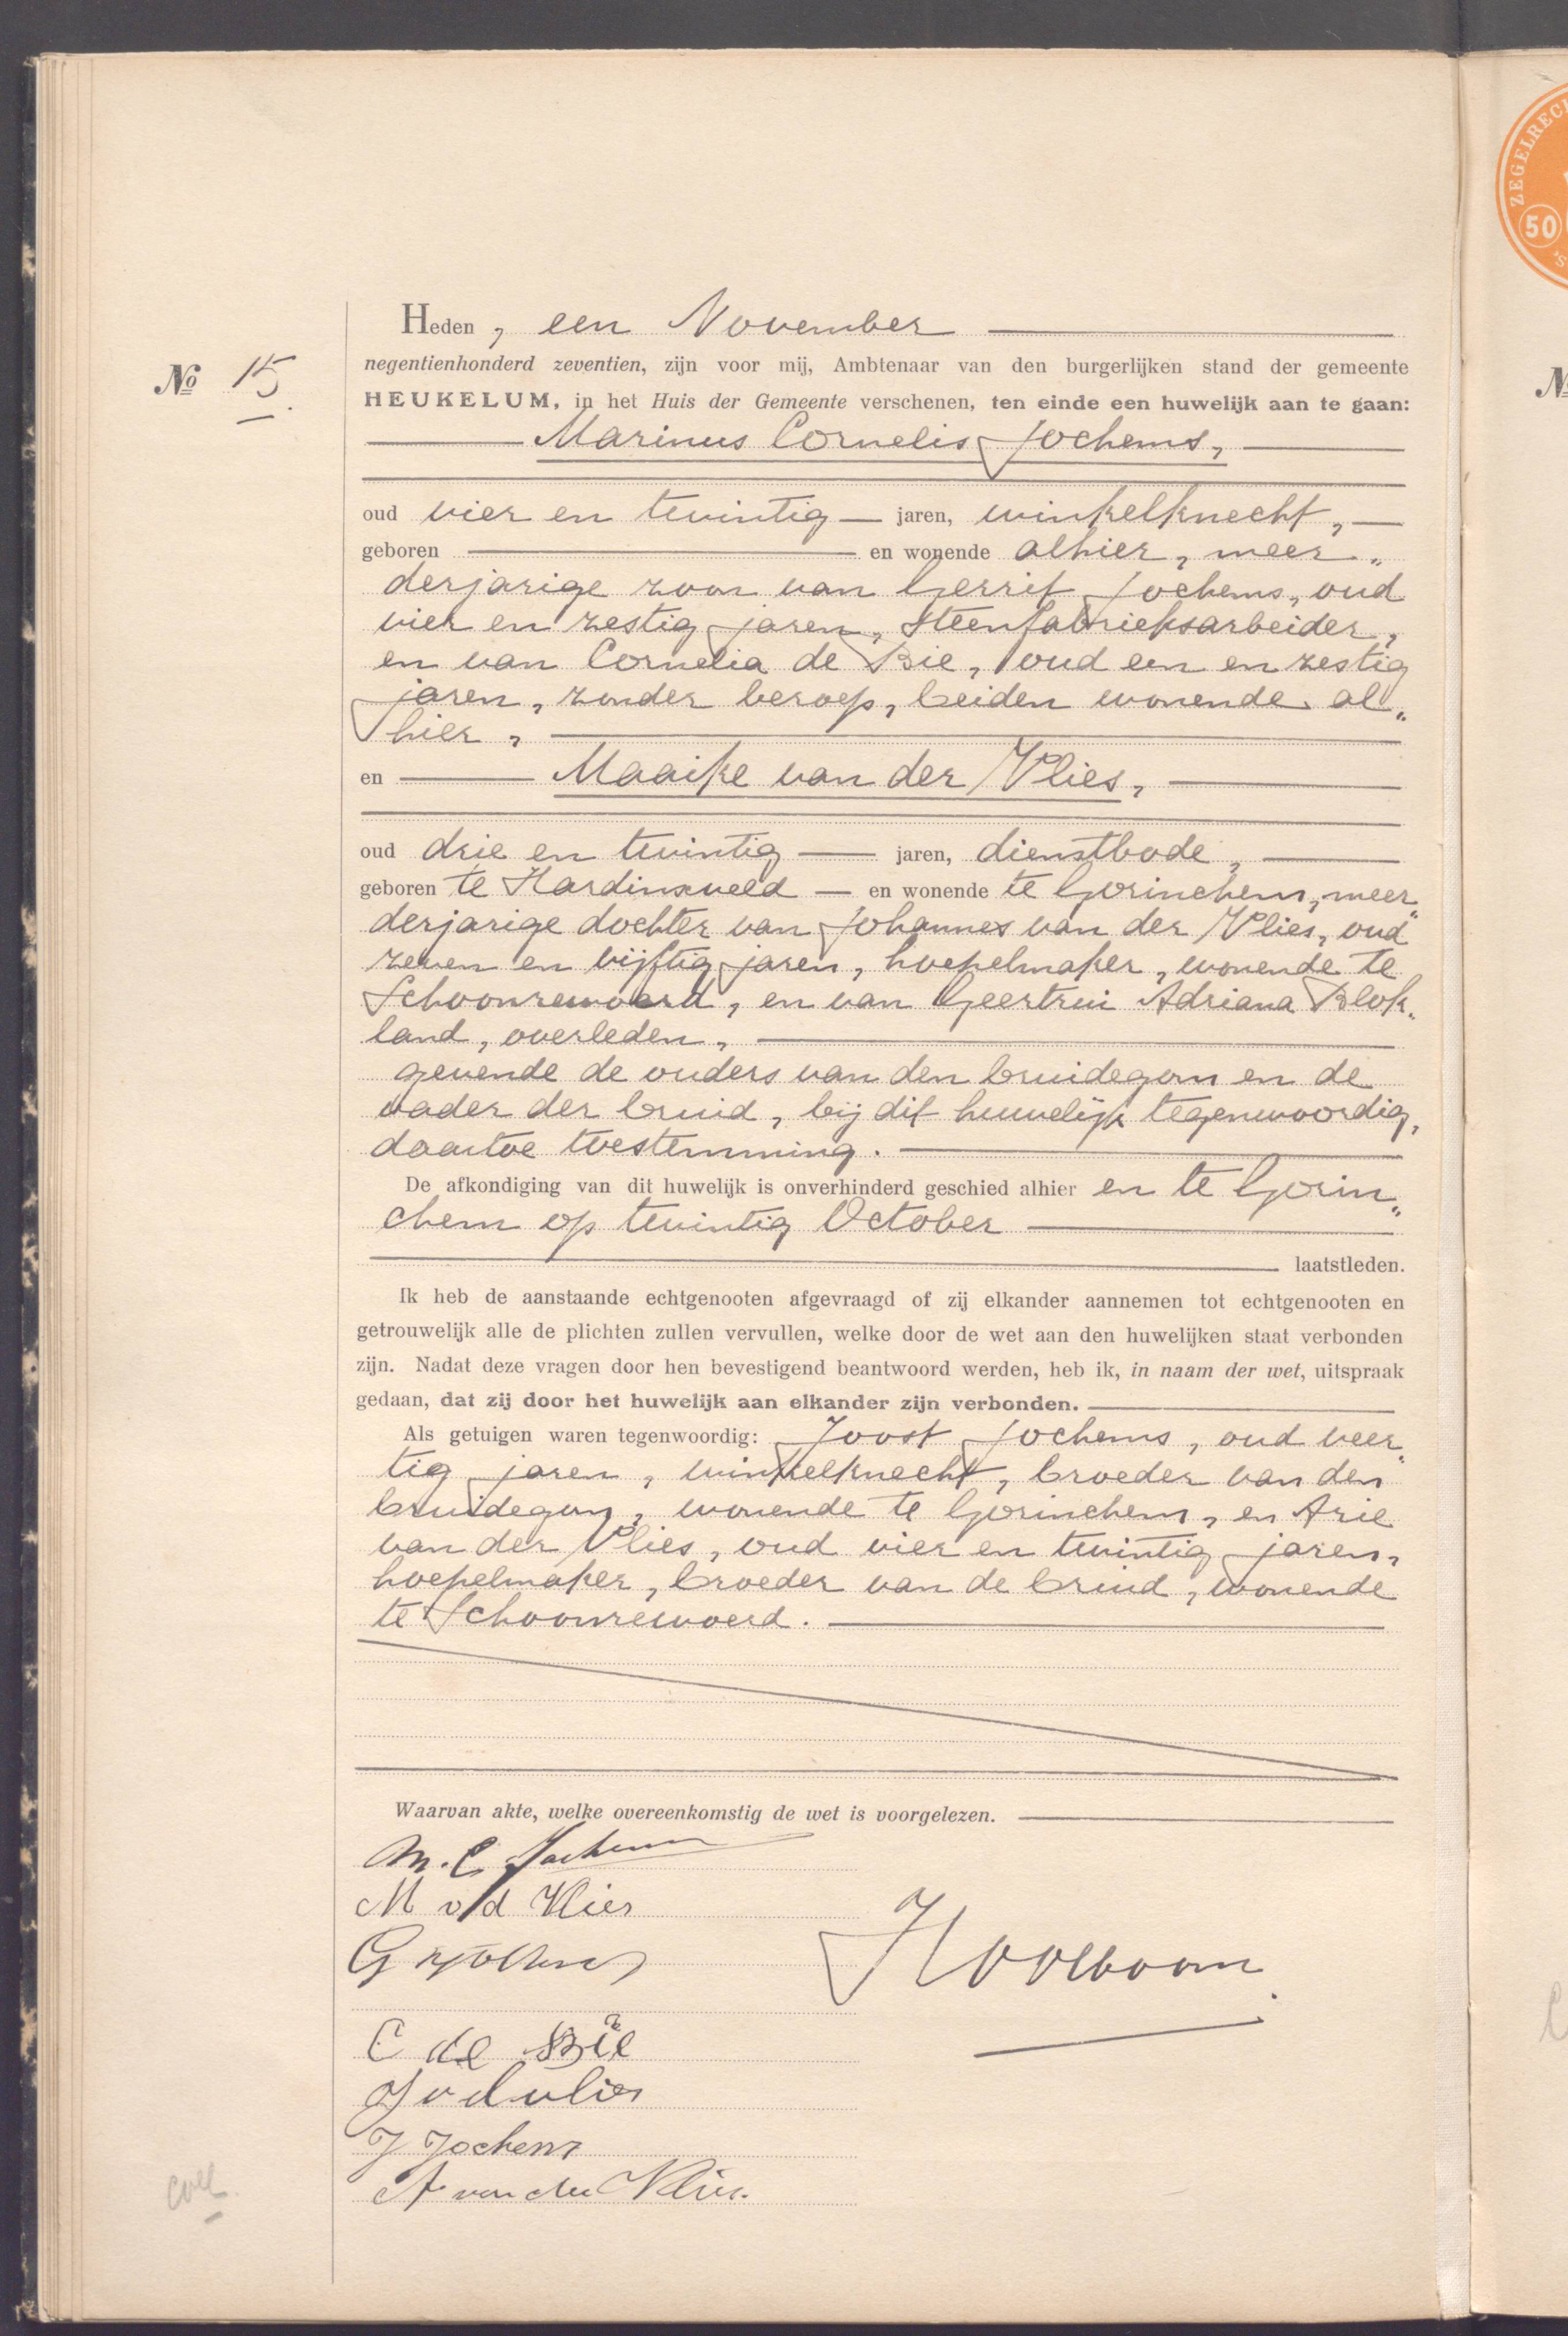 Heden, een November
negentienhonderd zeventien, zijn voor mij, Ambtenaar van den burgerlijken stand der gemeente
No 15.
HEUKELUM, in het Huis der Gemeente verschenen, ten einde een huwelijk aan te gaan:
Marinus Cornelis Jochems,
oud vier en twintig jaren, winkelknecht,
geboren en wonende alhier, meer„
derjarige zoon van Gerrit Jochems, oud
vier en zestig jaren, steenfabrieksarbeider,
en van Cornelia de Bie, oud een en zestig
jaren, zonder beroep, beiden wonende al„
hier,
en Maaike van der Vlies,
oud drie en twintig jaren, dienstbode,
geboren te Hardinxveld en wonende te Gorinchem, meer„
derjarige dochter van Johannes van der Vlies, oud
zeven en vijftig jaren, hoepelmaker, wonende te
Schoonrewoerd, en van Geertrui Adriana Blok„
land, overleden,
gevende de ouders van den bruidegom en de
vader der bruid, bij dit huwelijk tegenwoordig,
daartoe toestemming.
De afkondiging van dit huwelijk is onverhinderd geschied alhier en te Gorin„
chem op twintig October
laatstleden.
Ik heb de aanstaande echtgenooten afgevraagd of zij elkander aannemen tot echtgenooten en
getrouwelijk alle de plichten zullen vervullen, welke door de wet aan den huwelijken staat verbonden
zijn. Nadat deze vragen door hen bevestigend beantwoord werden, heb ik, in naam der wet, uitspraak
gedaan, dat zij door het huwelijk aan elkander zijn verbonden.
Als getuigen waren tegenwoordig: Joost Jochems, oud veer„
tig jaren, winkelknecht, broeder van den
bruidegom, wonende te Gorinchem, en Arie
van der Vlies, oud vier en twintig jaren,
hoepelmaker, broeder van de bruid, wonende
te Schoonrewoerd.
Waarvan akte, welke overeenkomstig de wet is voorgelezen.
M. C. Jochems
M v/d Vlies
G Jochems
C de Bie
J v d vlies
J Jochems
A van der Vlies.
coll.
ZEGELRECH
50